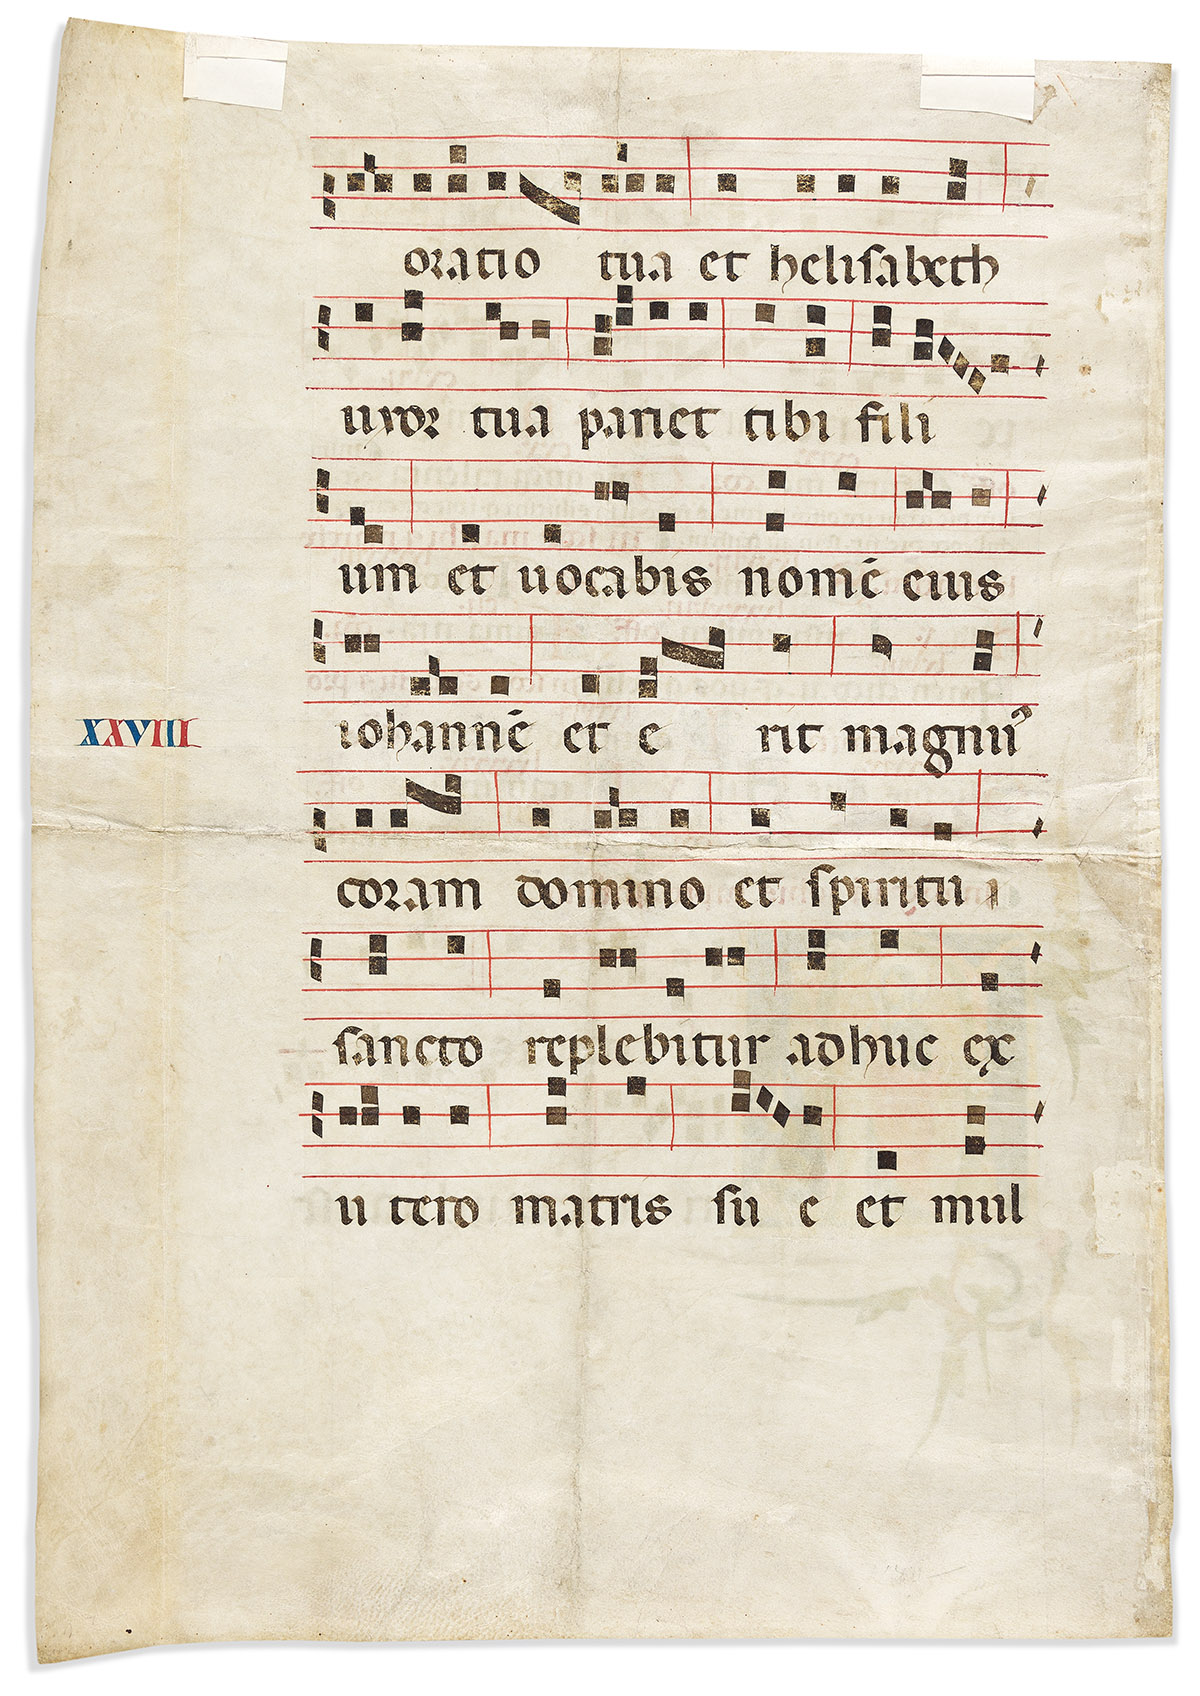 oratio tua et helisabeth
uxor tua pariet tibi fili
um et uocabis nomē eius
XXVIII
iohannē et e rit magnuꝰ
coram domino et spiritu
sancto replebitur adhuc ex
u tero matris su e et mul